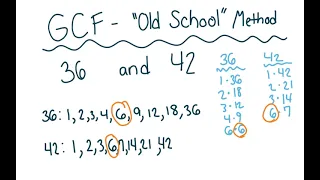 GCF - "Old School" Method
36 and 42
36: 1, 2, 3, 4, 6, 9, 12, 18, 36
42: 1, 2, 3, 6, 7, 14, 21, 42
36
1·36
2·18
3·12
4·9
6·6
42
1·42
2·21
3·14
6·7